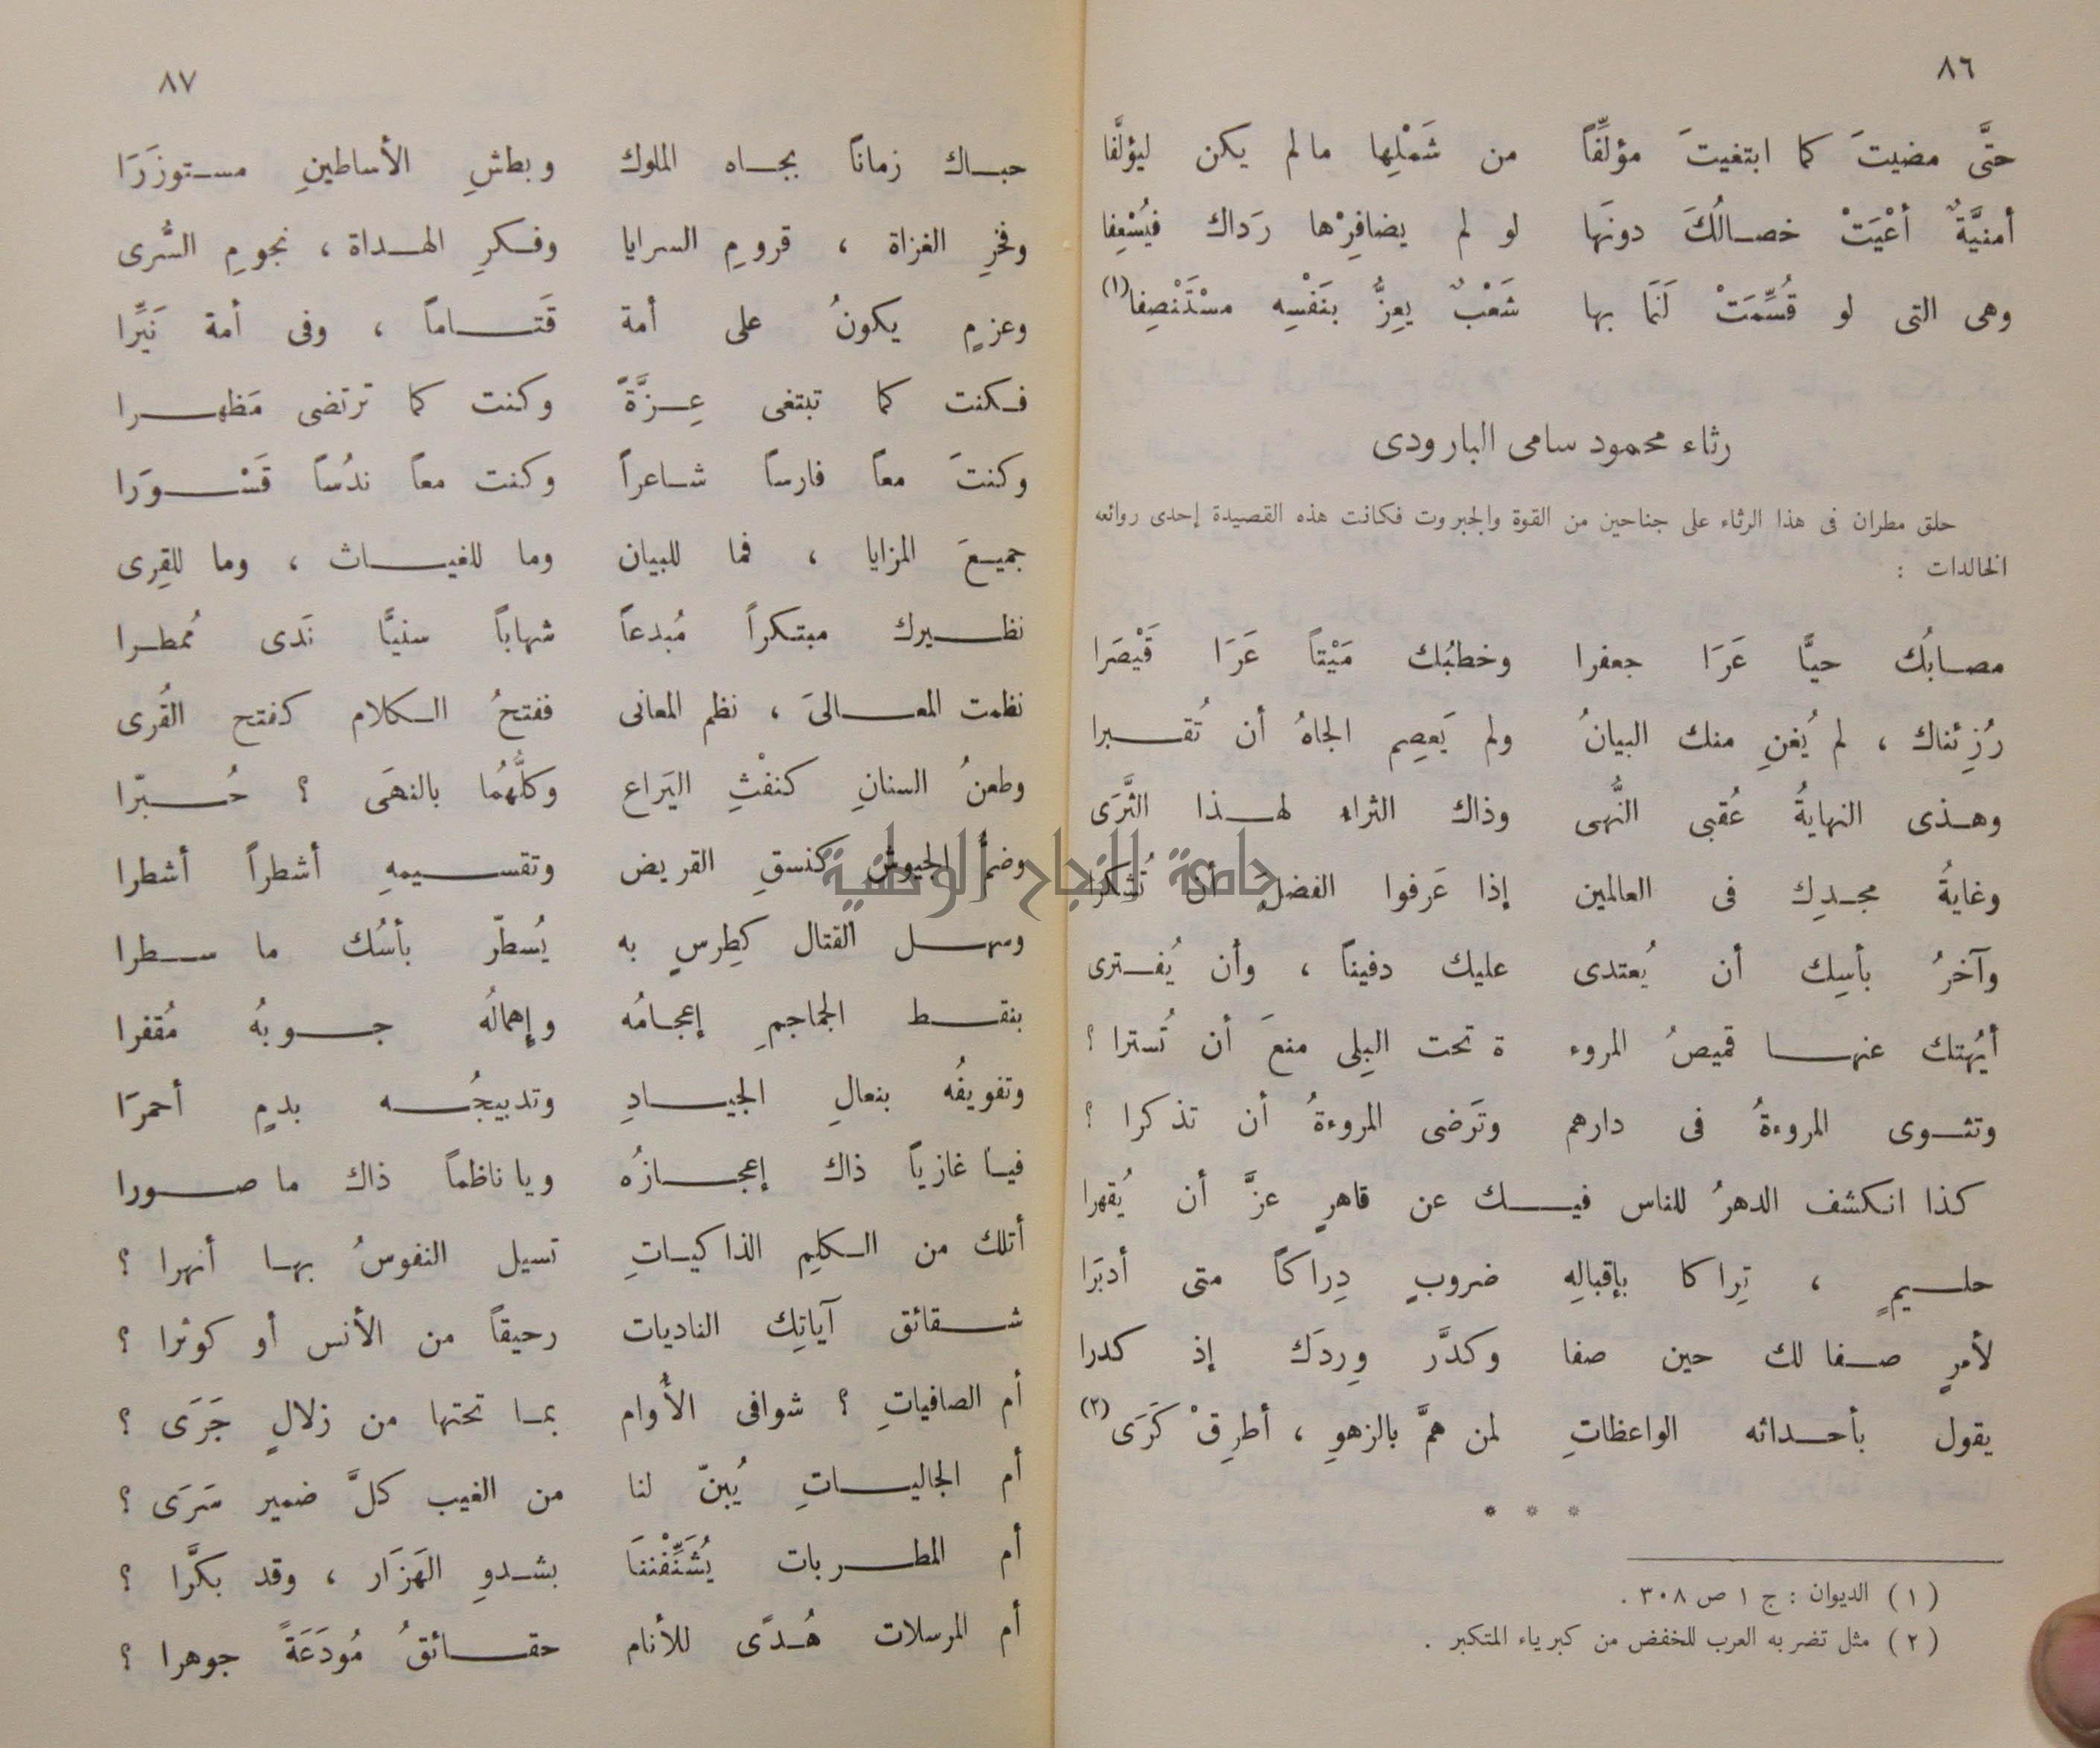 ٨٦
حتَّى مضيتَ كما ابتغيتَ مؤلِّفاً من شَمْلِها مالم يكن ليؤلَّفا
أمنيَّةٌ أعْيَتْ خصالُكَ دونَها لو لم يضافِرْها رَداك فيُسْعِفا
وهى التى لو قُسِّمَتْ لَنَمَا بها شَعْبٌ يعِزُّ بنَفْسِه مسْتَنْصِفا(١)
رثاء محمود سامى البارودى
حلق مطران فى هذا الرثاء على جناحين من القوة والجبروت فكانت هذه القصيدة إحدى روائعه
الخالدات :
مصابُك حيًّا عَرَا جعفرا وخطبُك مَيْتاً عَرَا قَيْصَرا
رُزِئناك ، لم يُغنِ منك البيانُ ولم يَعصِم الجاهُ أن تُقبرا
وهذى النهايةُ عُقبى النُّهى وذاك الثراء لهذا الثَّرَى
وغايةُ مجدِك فى العالمين إذا عَرفوا الفضلَ أن تُشكرا
وآخرُ بأسِك أن يُعتدى عليك دفيناً ، وأن يُفترى
أيُهتك عنها قميصُ المروء ة تحت البِلى منعَ أن تُسترا ؟
وتثوى المروءةُ فى دارهم وتَرضى المروءةُ أن تذكرا ؟
كذا انكشف الدهرُ للناس فيك عن قاهرٍ عزَّ أن يُقهرا
حليمٍ ، تِراكا بإقبالِه ضروبٍ دِراكاً متى أدبَرا
لأمرٍ صفا لك حين صفا وكدَّر وِردَك إذ كدرا
يقول بأحداثه الواعظاتِ لمن همَّ بالزهوِ ، أطرِقْ كَرَى(٢)
* * *
(١) الديوان : ج ١ ص ٣٠٨ .
(٢) مثل تضربه العرب للخفض من كبرياء المتكبر .
٨٧
حباك زماناً بجاه الملوك وبطشِ الأساطينِ مستوزَرَا
وفخرِ الغزاة ، قرومِ السرايا وفكرِ الهداة ، نجومِ السُّرى
وعزمٍ يكونُ على أمة قَتاماً ، وفى أمة نَيِّرا
فكنت كما تبتغى عِزَّةً وكنت كما ترتضى مَظهرا
وكنتَ معاً فارساً شاعراً وكنت معاً ندُساً قَسْوَرا
جميعَ المزايا ، فما للبيان وما للغياث ، وما للقِرى
نظيرك مبتكراً مُبدعاً شهاباً سنيًّا نَدى مُمطرا
نظمت المعالىَ ، نظم المعانى ففتحُ الكلام كفتح القُرى
وطعنُ السنانِ كنفْثِ اليَراع وكلُّهُما بالنهَى ؟ حُبرّا
وضمُّ الجيوش كنسقِ القريض وتقسيمهِ أشطراً أشطرا
وسهل القتال كطِرسٍ به يُسطّر بأسُك ما سطرا
بنقط الجماجمِ إعجامُه وإهمالُه جوبُه مُقفرا
وتفويفُه بنعالِ الجيادِ وتدبيجُه بدمٍ أحمرَا
فيا غازياً ذاك إعجازُه ويا ناظماً ذاك ما صورا
أتلك من الكلِمِ الذاكياتِ تسيل النفوسُ بها أنهرا ؟
شقائق آياتِك الناديات رحيقاً من الأنس أو كوثرا ؟
أم الصافياتِ ؟ شوافى الأُوام بما تحتها من زلالٍ جَرَى ؟
أم الجالياتِ يُبنّ لنا من الغيب كلَّ ضمير سَرَى ؟
أم المطربات يُشَنِّفْننَا بشدوِ الهَزَار ، وقد بكَّرا ؟
أم المرسلات هُدًى للأنام حقائقُ مُودَعَةً جوهرا ؟
جامعة النجاح الوطنية